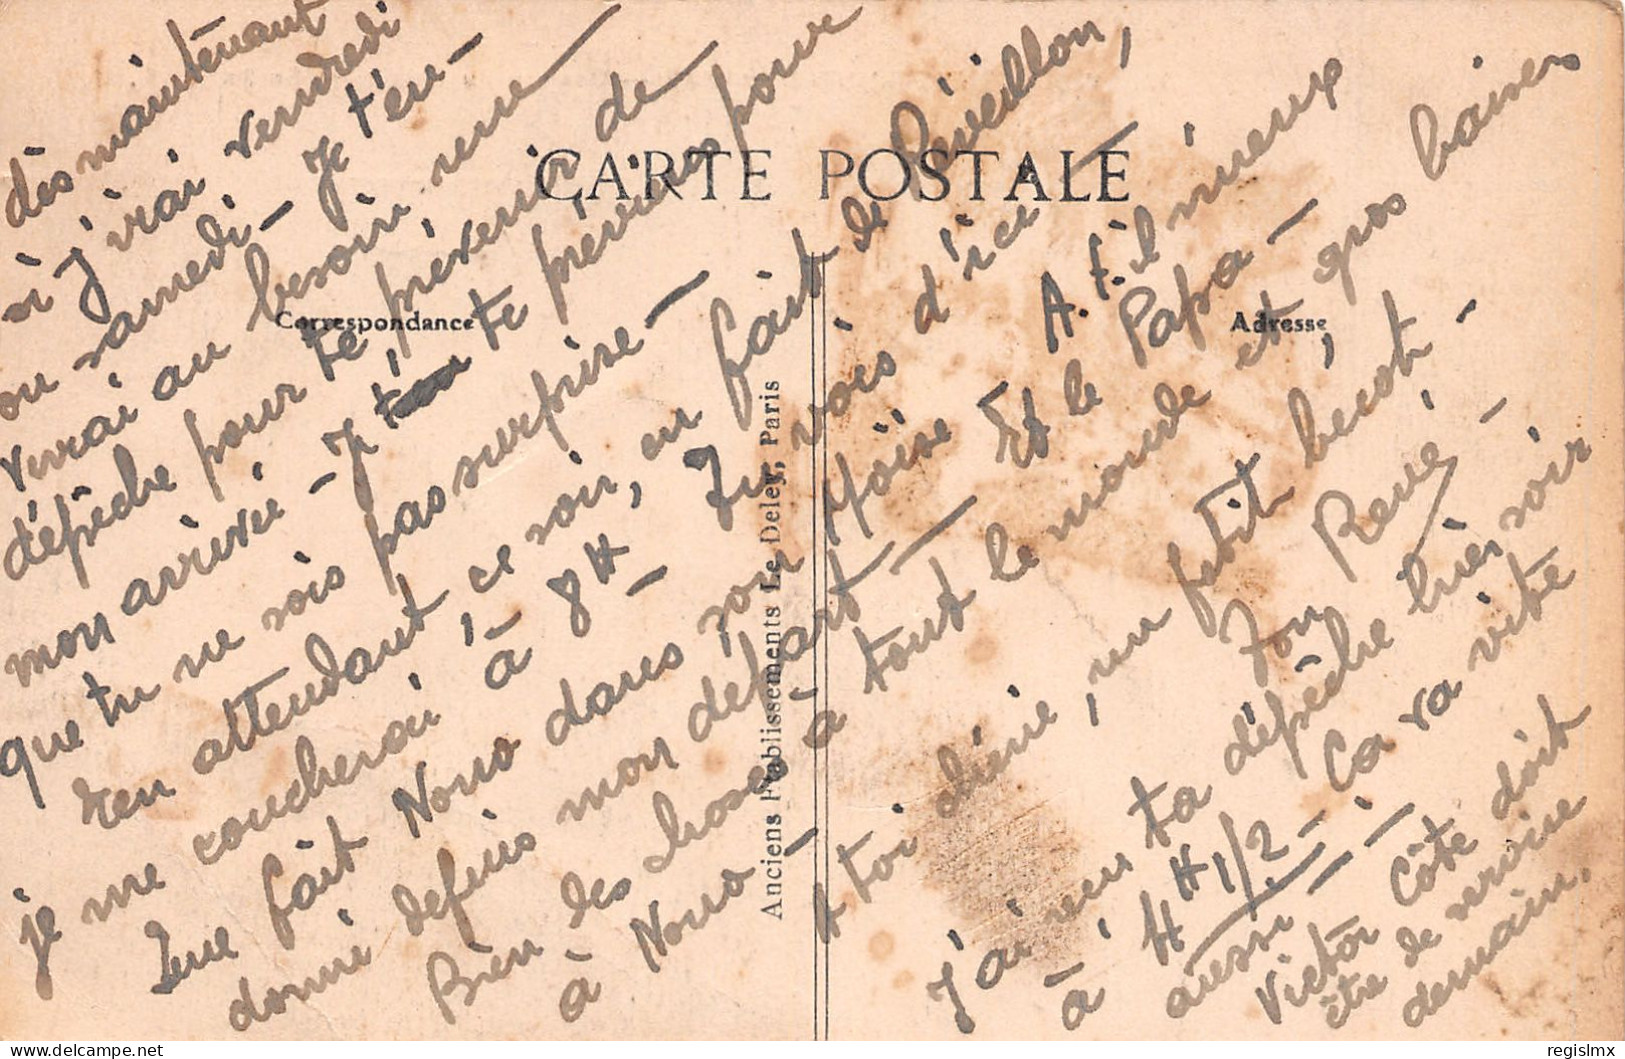 CARTE POSTALE
Correspondance
Adresse
Anciens Etablissements Le Deley, Paris
dès maintenant
si j'irai vendredi
ou samedi - Je t'en-
verrai au besoin une
dépêche pour te prévenir de
mon arrivée - Je te préviens pour
que tu ne sois pas surprise -
En attendant ce soir, en fait de Réveillon,
je me coucherai à 8H - Tu vois d'ici -
Que fait Nono dans son Moïse A. t. il mieux
dormi depuis mon départ - Et le Papa -
Bien des choses à tout le monde et, gros baisers
à Nono -
A toi chérie, un petit bécot -
Ton René -
J'ai reçu ta dépêche hier soir
à 4H 1/2 - Ca va vite
aussi -
Victor Côte doit
être de service
demain.
regislmx